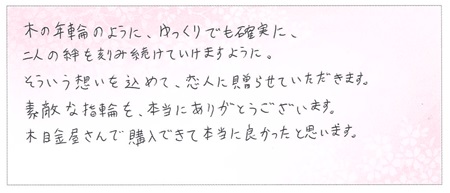 木の年輪のように、ゆっくりでも確実に、
二人の絆を刻み続けていけますように。
そういう想いを込めて、恋人に贈らせていただきます。
素敵な指輪を、本当にありがとうございます。
木目金屋さんで購入できて本当に良かったと思います。